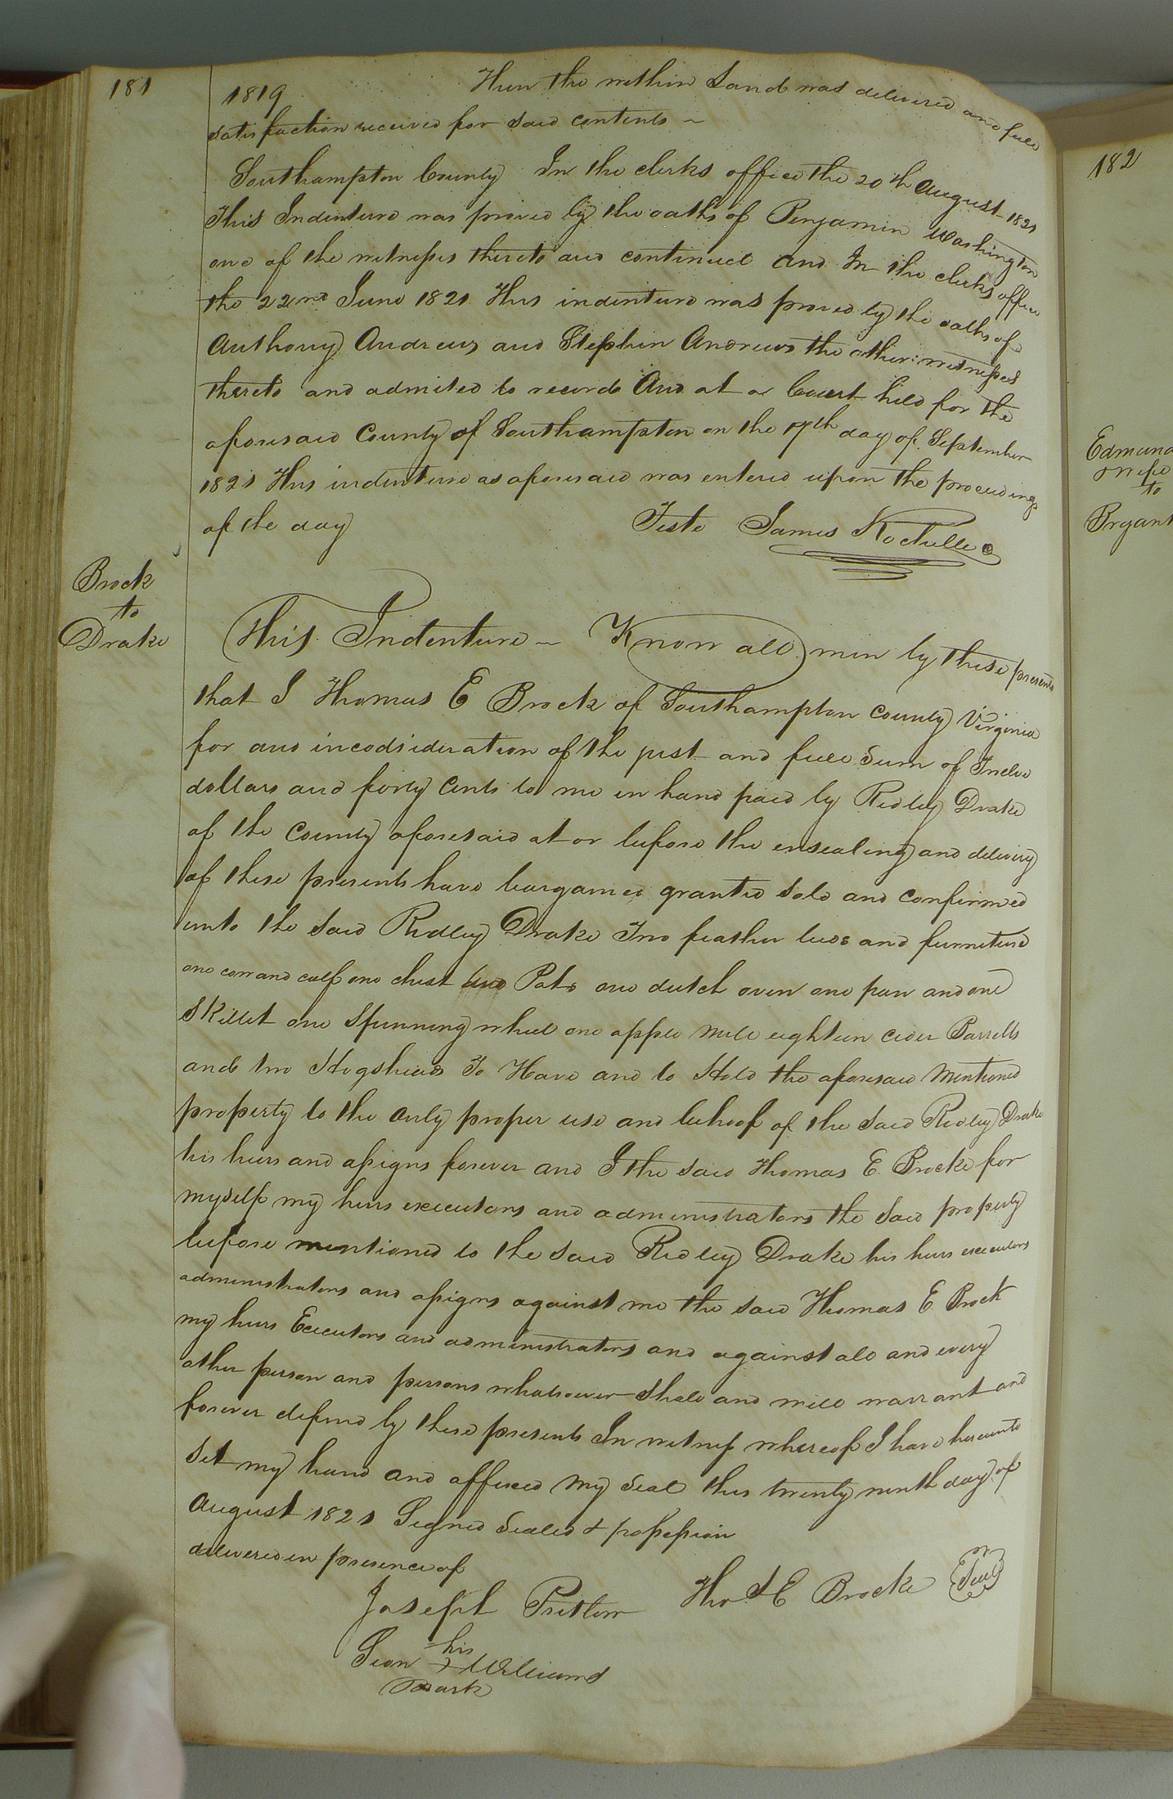 181
1819 Then the within Land was delivered and full
satisfaction received for said contents ~
Southampton County In the clerks office the 20th August 1821
This Indenture was proved by the oaths of Benjamin Washington
one of the witnesses thereto and continued and In the clerks office
the 22nd June 1821 This indenture was proved by the oaths of
Anthony Andrews and Stephen Andrews the other witnesses
thereto and admited to record And at a Court held for the
aforesaid County of Southampton on the 17th day of September
1821 This indenture as aforesaid was entered upon the proceedings
of the day Teste James Rochelle
Brock
to
Drake
This Indenture — Know all men by these presents
that I Thomas E Brock of Southampton County Virginia
for and in the just and full Sum of Twelve
dollars and forty Cents to me in hand paid by Ridley Drake
of the County aforesaid at or before the ensealing and delivery
of these presents have bargained granted sold and confirmed
unto the said Ridley Drake Two feather beds and furniture
one cow and calf one chest two Pots one dutch oven one pan and one
Skillet one Spinning wheel one apple Mill eighteen cider Barrells
and two Hogsheads To Have and to Hold the aforesaid Mentioned
property to the only proper use and behoof of the Said Ridley Drake
his heirs and assigns forever and I the said Thomas E Brock for
myself my heirs executors and administrators the said property
before mentioned to the said Ridley Drake his heirs executors
administrators and assigns against me the said Thomas E Brock
my heirs Executors and administrators and against all and every
other person and persons whatsoever Shall and will warrant and
forever defend by these presents In witness whereof I have hereunto
Set my hand and affixed My Seal this twenty ninth day of
August 1821 Signed Sealed & possession
delivered in presence of
Joseph Pretlow Tho E Brock Seal
his
Williams
mark
182
Edmund
wife
to
Bryant